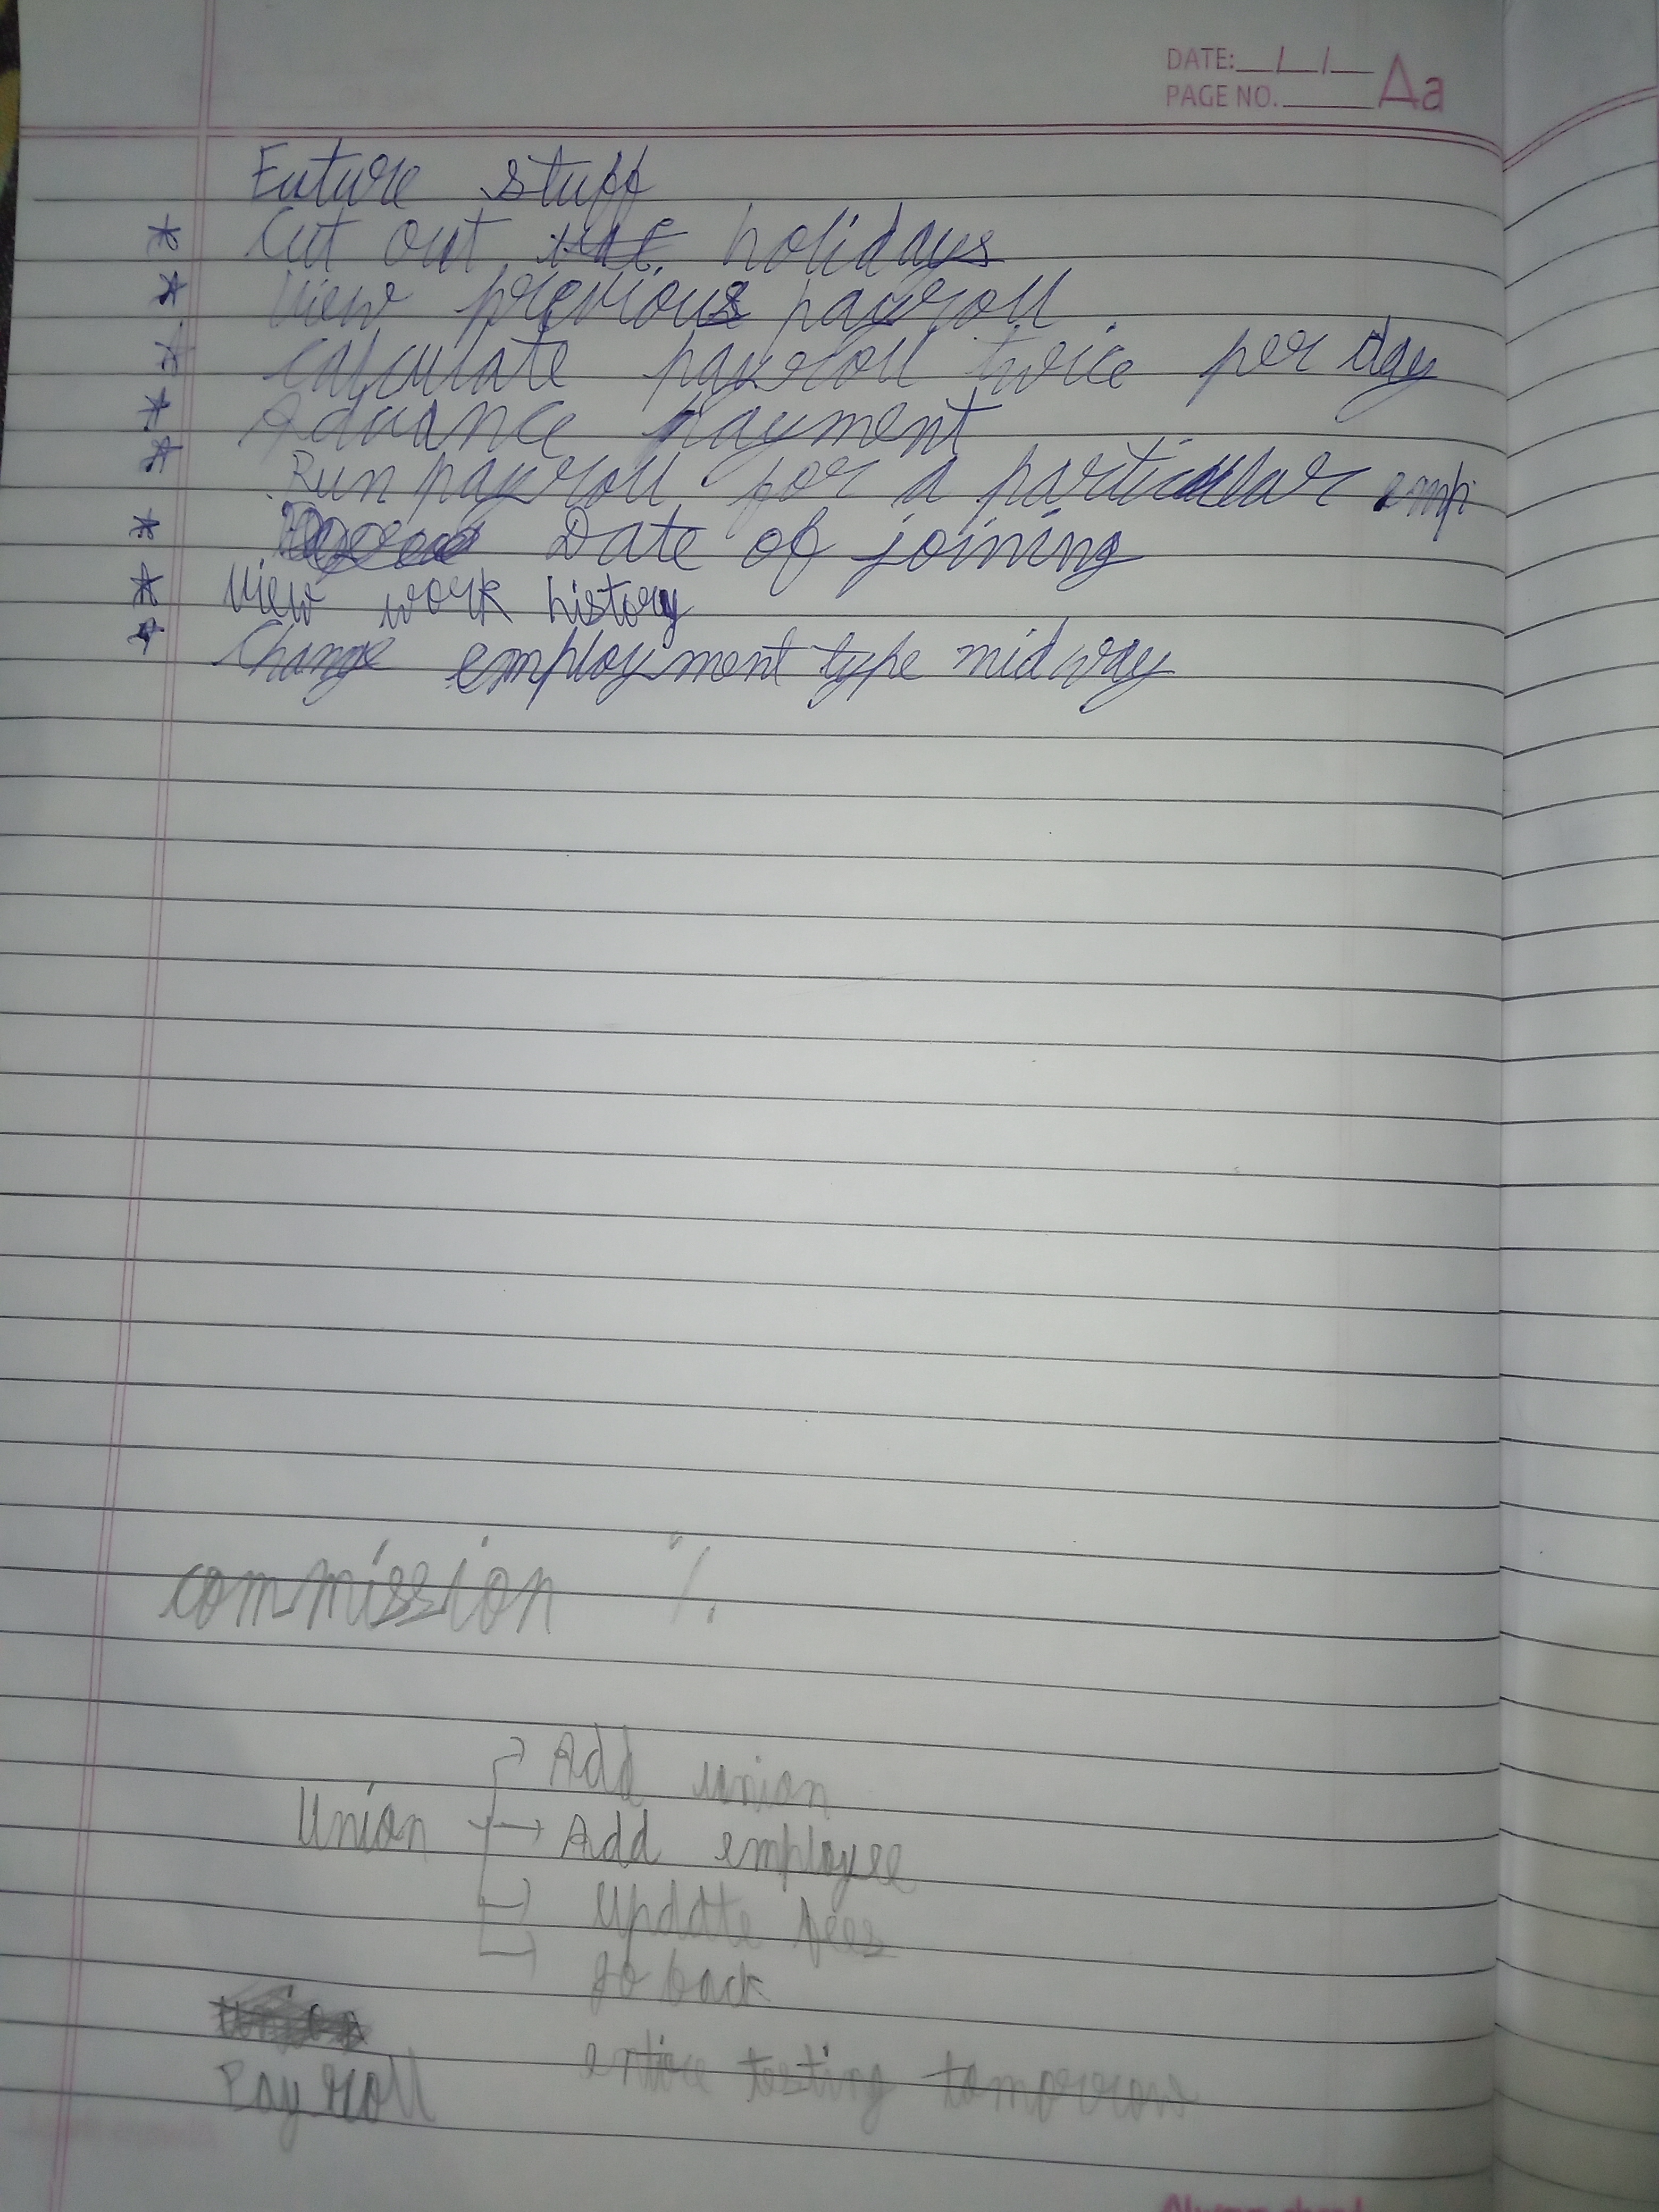 DATE: / /
PAGE NO.
Aa
Future stuff
* Cut out holidays
* View previous payroll
* Calculate payroll twice per day
* Advance payment
* Run payroll for a particular emp
* Date of joining
* View work history
* Change employment type midway
commission %
Add union
Union Add employee
Update fees
go back
Union
Payroll entire testing tomorrow